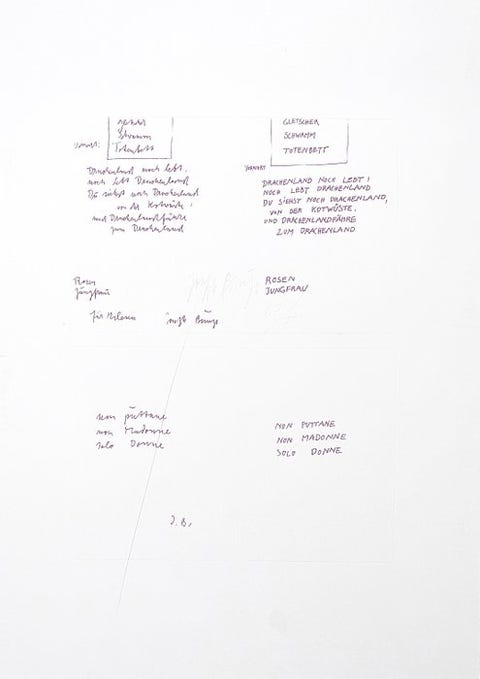 Gletscher
Schwamm
Totenbett
Vorwort:
Drachenland noch lebt,
noch lebt Drachenland
Du siehst noch Drachenland
von der Kotwüste,
und Drachenlandfähre
zum Drachenland
Rosen
Jungfrau
für
non puttane
non Madonne
solo Donne
J.B.
GLETSCHER
SCHWAMM
TOTENBETT
VORWORT
DRACHENLAND NOCH LEBT!
NOCH LEBT DRACHENLAND
DU SIEHST NOCH DRACHENLAND,
VON DER KOTWÜSTE,
UND DRACHENLANDFÄHRE
ZUM DRACHENLAND
ROSEN
JUNGFRAU
NON PUTTANE
NON MADONNE
SOLO DONNE